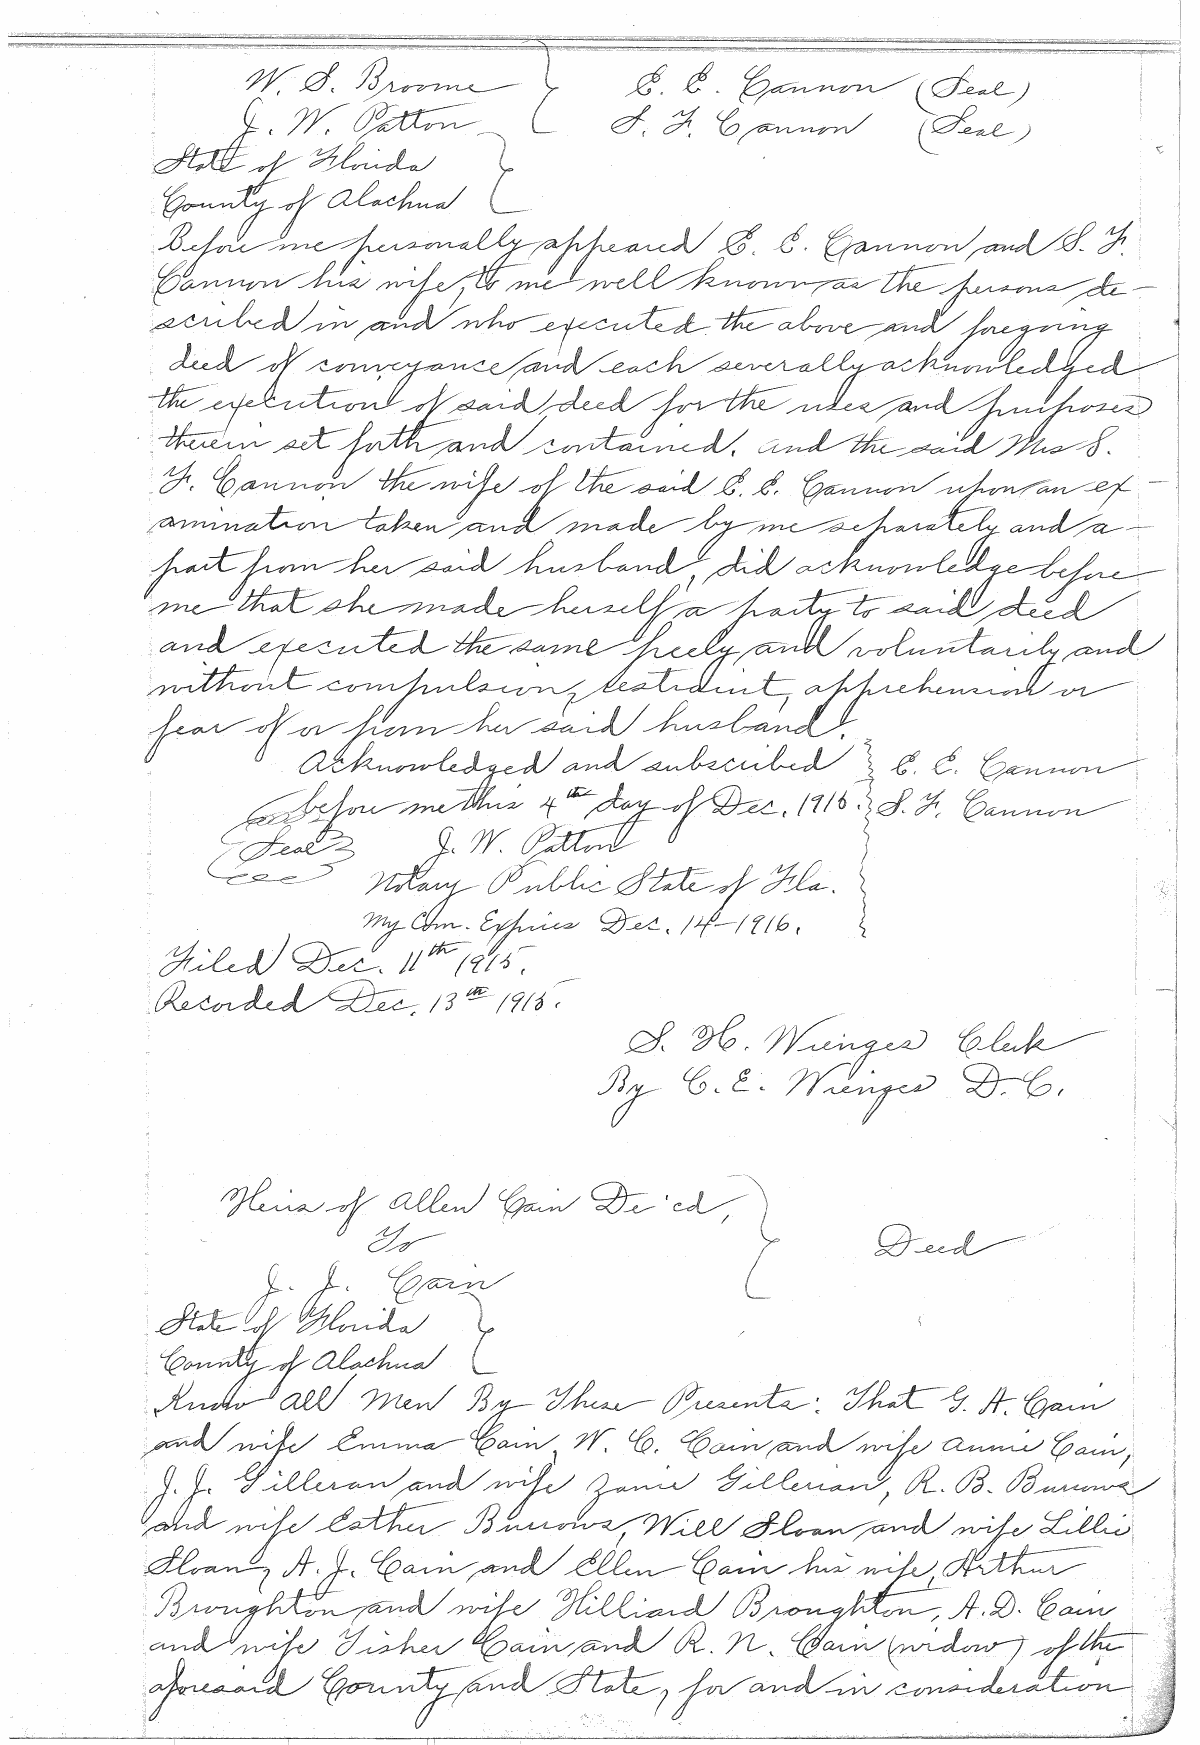 W. S. Broome E. E. Cannon (Seal)
J. W. Patton S. F. Cannon (Seal)
State of Florida
County of Alachua
Before me personally appeared E. E. Cannon and S. F.
Cannon his wife, to me well known as the persons de-
scribed in and who executed the above and foregoing
deed of conveyance and each severally acknowledged
the execution of said deed for the uses and purposes
therein set forth and contained. and the said Mrs S.
F. Cannon the wife of the said E. E. Cannon upon an ex-
amination taken and made by me separately and a-
part from her said husband, did acknowledge before
me that she made herself a party to said deed
and executed the same freely and voluntarily and
without compulsion, restraint, apprehension or
fear of or from her said husband.
Acknowledged and subscribed E. E. Cannon
before me this 4th day of Dec. 1915. S. F. Cannon
Seal J. W. Patton
Notary Public State of Fla.
My Com. Expires Dec. 14-1916.
Filed Dec. 11th 1915.
Recorded Dec. 13th 1915.
S. H. Wienges Clerk
By C. E. Wienges D. C.
Heirs of Allen Cain De'cd,
To Deed
J. J. Cain
State of Florida
County of Alachua
Know All Men By These Presents: That G. A. Cain
and wife Emma Cain, W. C. Cain and wife Annie Cain,
J. J. Gilleran and wife Zanie Gillerian, R. B. Burrows
and wife Esther Burrows, Will Sloan and wife Lillie
Sloan, A. J. Cain and Ellen Cain his wife, Arthur
Broughton and wife Hilliard Broughton, A. D. Cain
and wife Fisher Cain and R. N. Cain (widow) of the
aforesaid County and State, for and in consideration